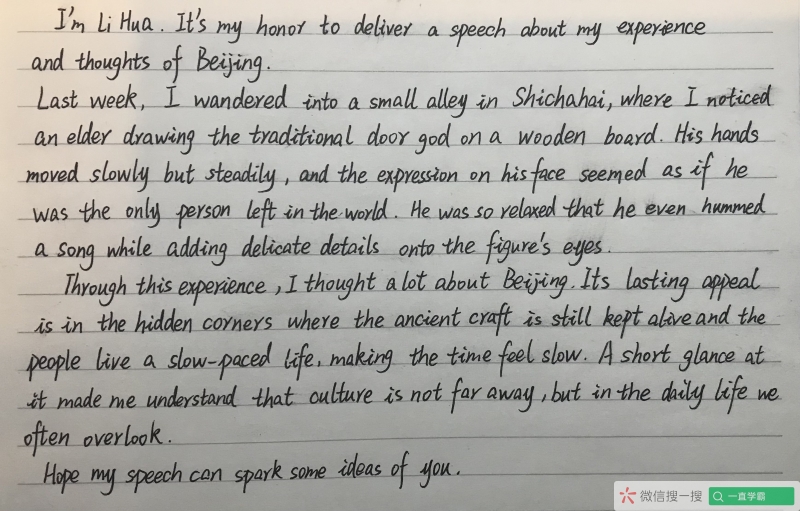 I'm Li Hua. It's my honor to deliver a speech about my experience
and thoughts of Beijing.
Last week, I wandered into a small alley in Shichahai, where I noticed
an elder drawing the traditional door god on a wooden board. His hands
moved slowly but steadily, and the expression on his face seemed as if he
was the only person left in the world. He was so relaxed that he even hummed
a song while adding delicate details onto the figure's eyes.
Through this experience, I thought a lot about Beijing. Its lasting appeal
is in the hidden corners where the ancient craft is still kept alive and the
people live a slow-paced life, making the time feel slow. A short glance at
it made me understand that culture is not far away, but in the daily life we
often overlook.
Hope my speech can spark some ideas of you.
微信搜一搜 一直学霸